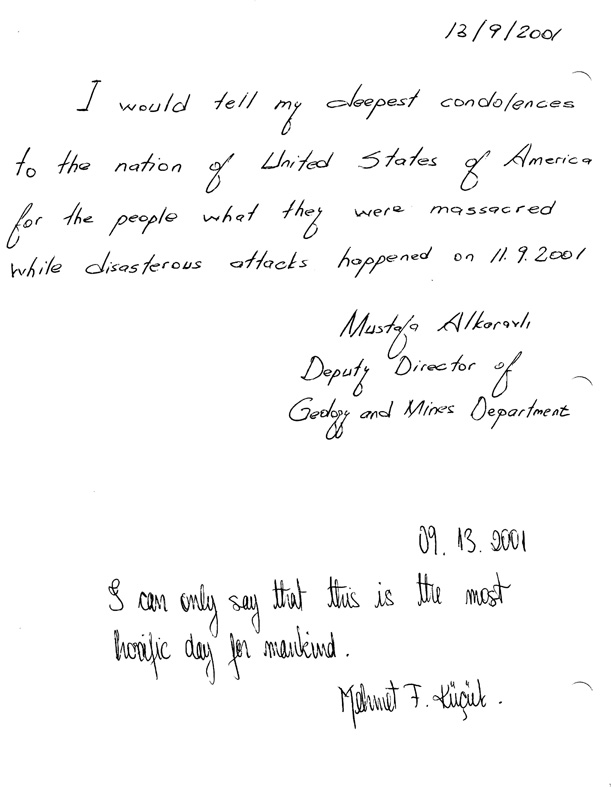 13/9/2001
I would tell my deepest condolences
to the nation of United States of America
for the people what they were massacred
while disasterous attacks happened on 11.9.2001
Mustafa Alkaravlı
Deputy Director of
Geology and Mines Department
09. 13. 2001
I can only say that this is the most
horific day for mankind.
Mehmet F. Küçük.